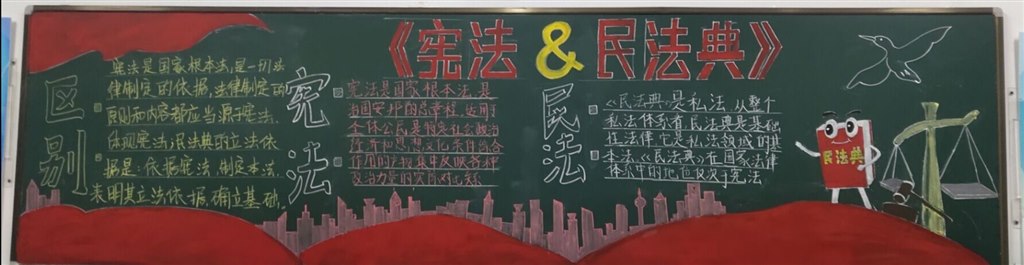 《宪法&民法典》
区别
宪法是国家根本法,是一切法
律制定的依据,法律制定的
原则和内容都应当源于宪法.
体现宪法,民法典的立法依
据是:依据宪法,制定本法.
表明其立法依据,确立基础.
宪法
宪法是国家根本法,是
治国安邦的总章程,适用
个体公民,是特定社会政治
经济和思想文化条件综合
作用的产物,集中反映各种
政治力量的实际对比关系
民法
《民法典》是私法,从整个
私法体系看民法典是基础
性法律,它是私法领域的基
本法,《民法典》在国家法律
体系中的地位仅次于宪法
民法典